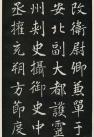 改衛尉卿兼單于
安北副大都護靈
州刺史攝御史中
丞擢充朔方節度